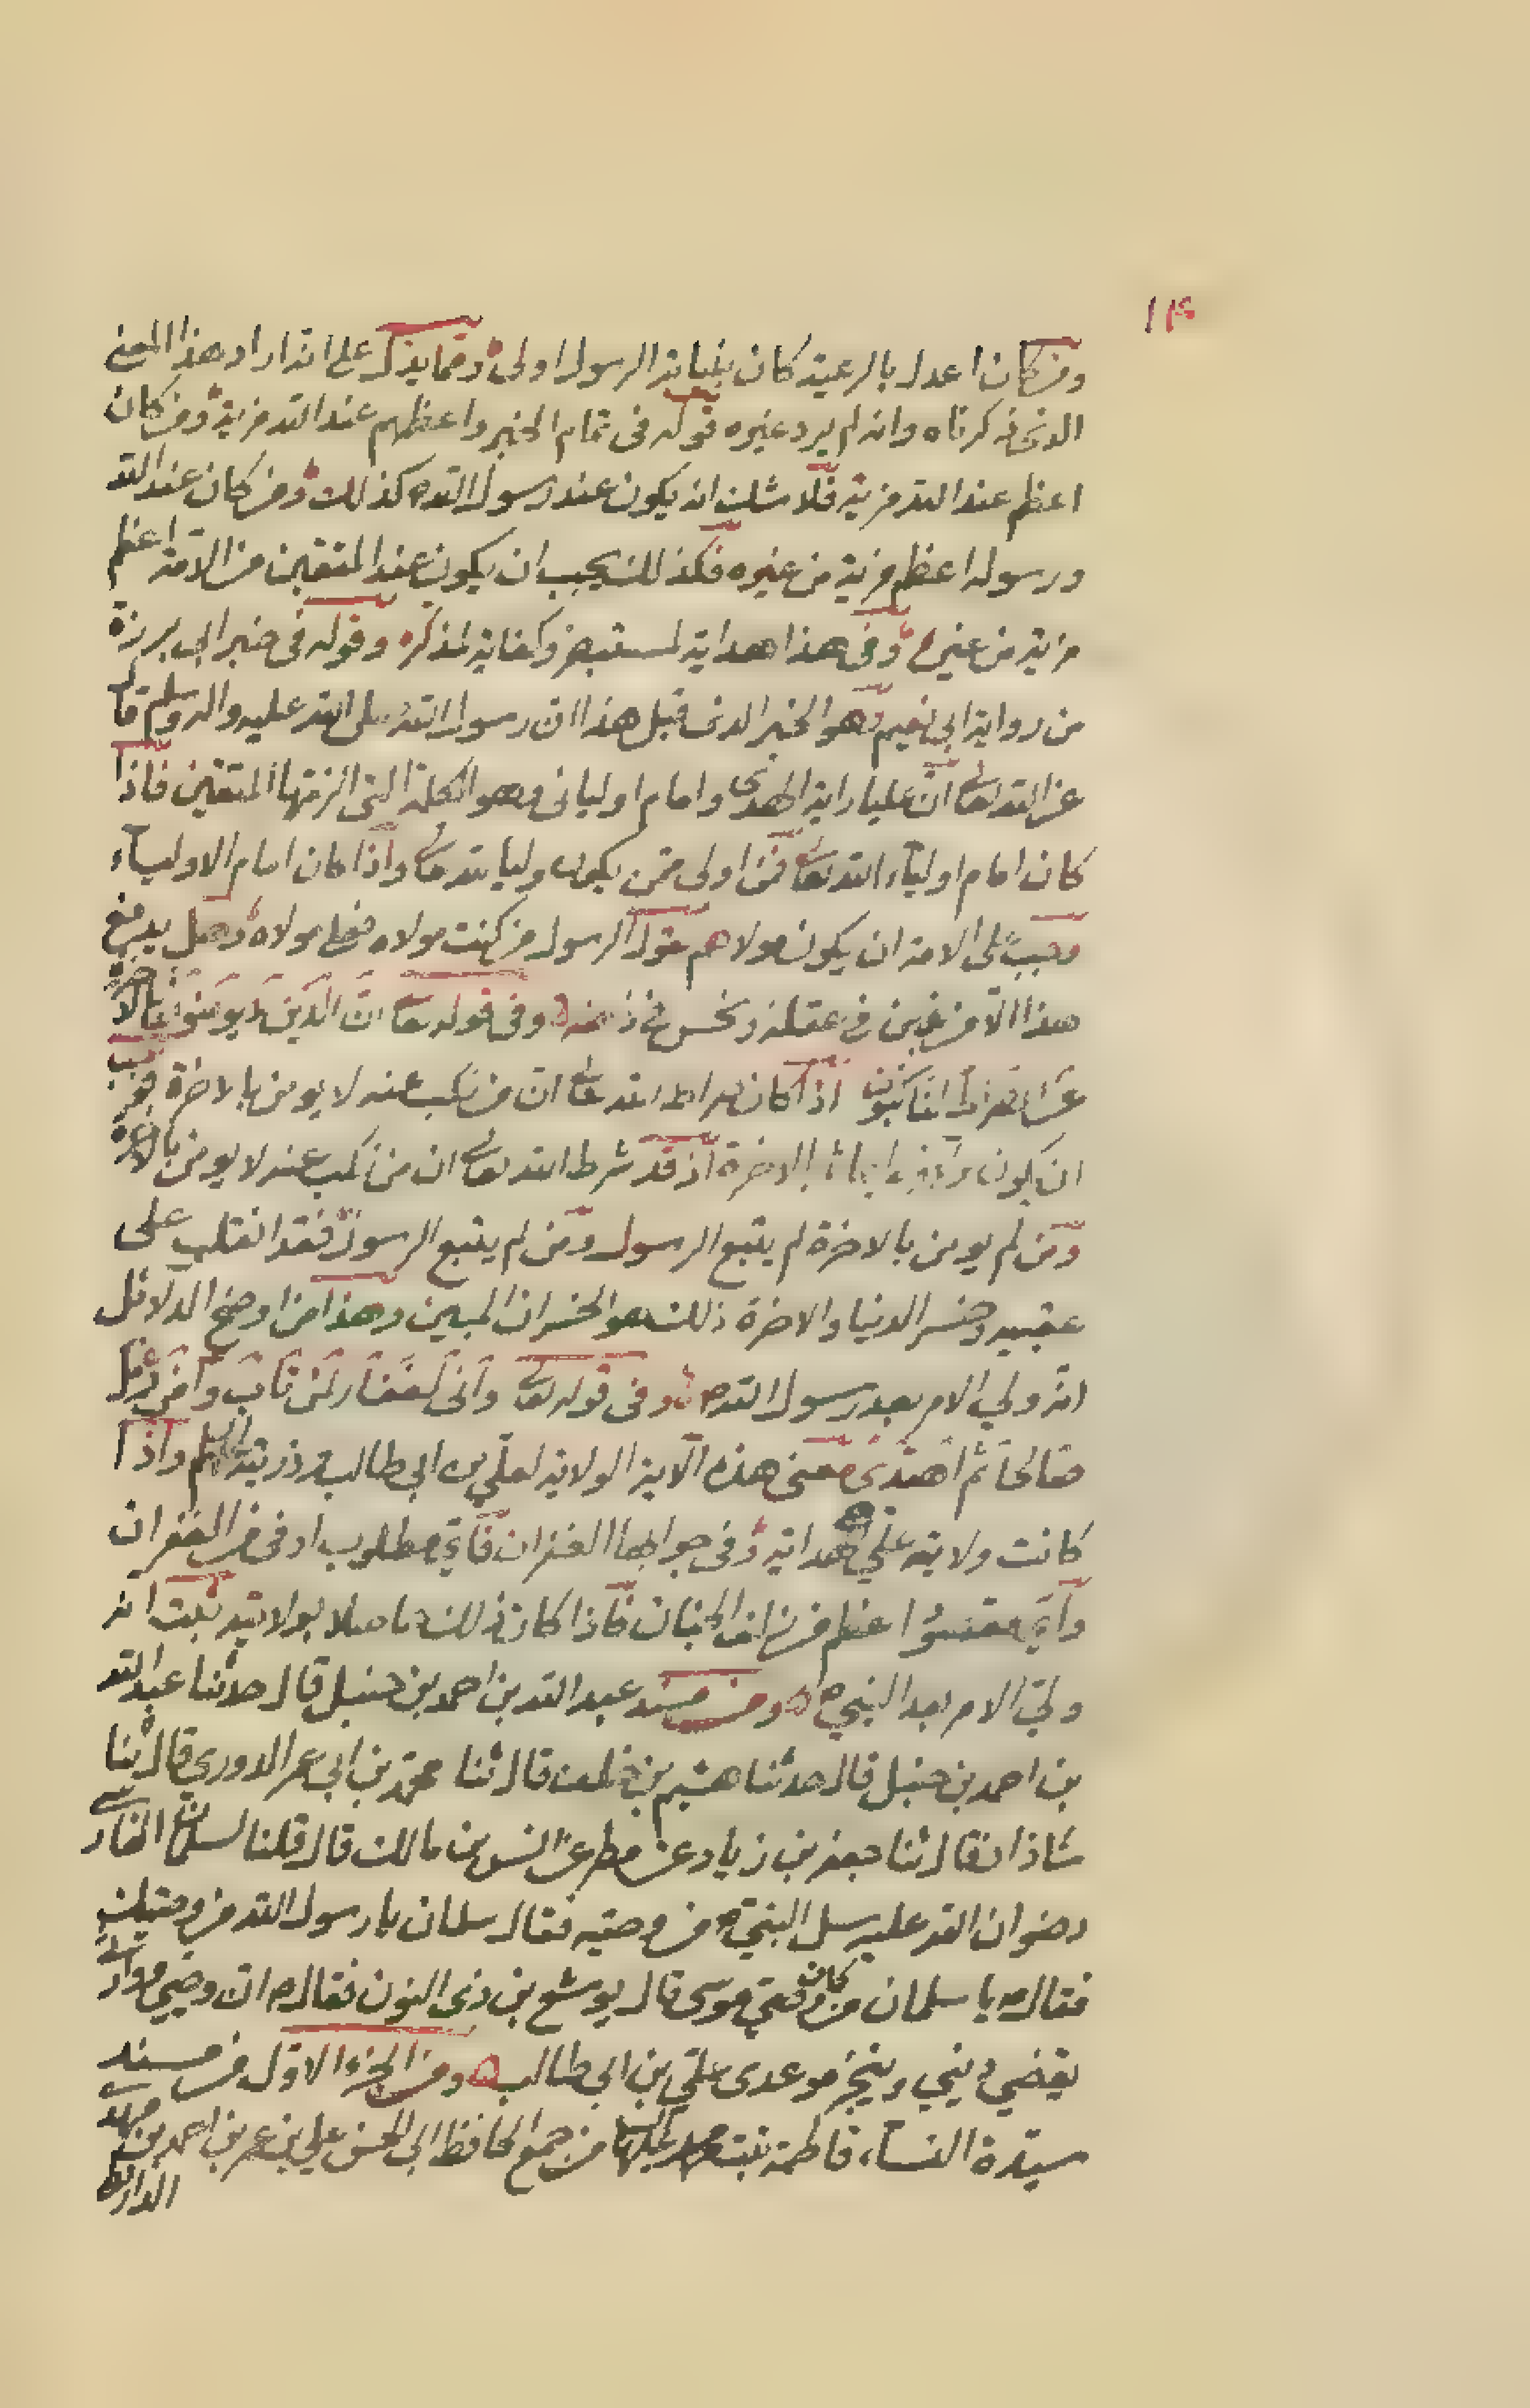 ١١٤
ومن كان اعدل بالرعية كان بنيابة الرسول اولى ومما يدل على انه اراد هذا المعنى
الذى ذكرناه وانه لم يرد غيره قوله فى تمام الخبر واعظمهم عند الله مزية ومن كان
اعظم عند الله مزية فلا شك انه يكون عند رسول الله ص كذلك ومن كان عند الله
ورسوله اعظم مزية من غيره فكذلك يجب ان يكون عند المتقين من الامة اعظم
مزية من غيره وفى هذا هداية لمستبصر وكفاية لمذكر وقوله فى خبر ابى برزة
من رواية ابى نعيم وهو الخبر الذى قبل هذا ان رسول الله صلى الله عليه واله وسلم قال
عن الله تعالى ان عليا راية الهدى وامام اوليائى وهو الكلمة التى الزمتها المتقين فاذا
كان امام اولياء الله تعالى فمن اولى ممن يكون وليا لله تعالى واذا كان امام الاولياء
وجب على الامة ان يكون مولاهم بقول الرسول من كنت مولاه فعلى مولاه وهل يدفع
هذا الا من غبن فى عقله وبخس فى ذهنه وفى قوله تعالى ان الذين لا يومنون بالاخرة
عن الصراط لناكبون اذا كان صراط الله تعالى ان من نكب عنه لا يومن بالاخرة فوجب
ان يكون الاخرة اذ قد شرط الله تعالى ان من نكب عنه لا يومن بالاخرة
ومن لم يومن بالاخرة لم يتبع الرسول ومن لم يتبع الرسول فقد انقلب على
عقبيه وخسر الدنيا والاخرة ذلك هو الخسران المبين وهذا من اوضح الدلائل
انه ولي الامر بعد رسول الله ص وفى قوله تعالى وانى لغفار لمن تاب وآمن وعمل
صالحا ثم اهتدى فمعنى هذه الآية الولاية لعلي بن ابى طالب وذريته واذا
كانت ولاية علي هداية وفى جوابها الغفران فاي مطلوب اوفى من الغفران
واي مقصود اعظم من زلف الجنان فاذا كان ذلك حاصلا بولايته ثبت انه
ولي الامر بعد النبي ص ومن مسند عبد الله بن احمد بن حنبل قال حدثنا عبد الله
بن احمد بن حنبل قال حدثنا هشيم بن خلف قال ثنا محمد بن ابى عمر الدوري قال ثنا
شاذان قال ثنا جعفر بن زياد عن مطر عن انس بن مالك قال قلنا لسلمان الفارسى
رضوان الله عليه سل النبي ص من وصيه فقال سلمان يا رسول الله من وصيك
فقال ص يا سلمان من كان وصي موسى قال يوشع بن ذى النون فقال ص ان وصيي ووارثى
يقضي دينى وينجز موعدى علي بن ابى طالب ومن الجزء الاول من مسند
سيدة النساء فاطمة بنت محمد من جمع الحافظ ابى الحسن علي بن عمر بن احمد بن مهدى
الدارقطنى